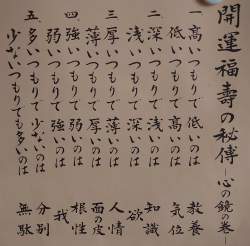 開運福寿の秘傳 ―心の鏡の巻―
一 高いつもりで低いのは 教養
低いつもりで高いのは 気位
二 深いつもりで浅いのは 知識
浅いつもりで深いのは 欲
三 厚いつもりで薄いのは 人情
薄いつもりで厚いのは 面の皮
四 強いつもりで弱いのは 根性
弱いつもりで強いのは 我
五 多いつもりで少ないのは 分別
少ないつもりで多いのは 無駄